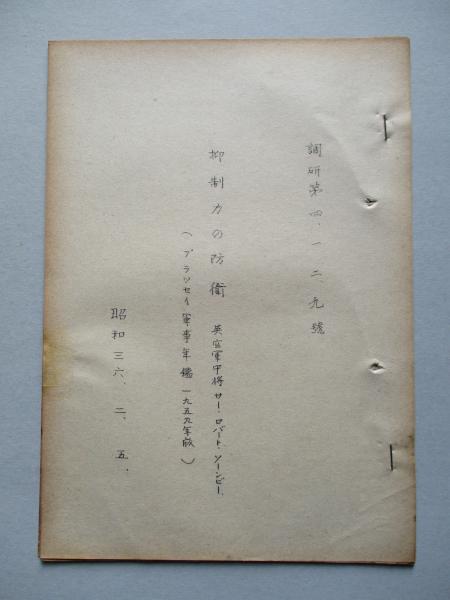 調研第四、一二、九號
抑制力の防衛 英空軍中将サー・ロバート・ソーンビー、
(ブラッセイ軍事年鑑一九五九年版)
昭和三六、二、五、